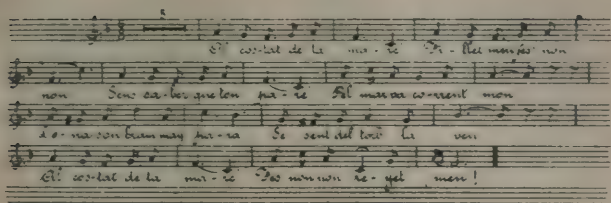 Al cos-tat de la ma-re Fi-llet meu fés non
non Sens sa-ber que ton pa-re Pel mar va co-rrent mon
so-na son bram may pa-ra Se sent del tro la veu
Al cos-tat de la ma-re Fes non non re-yet meu!